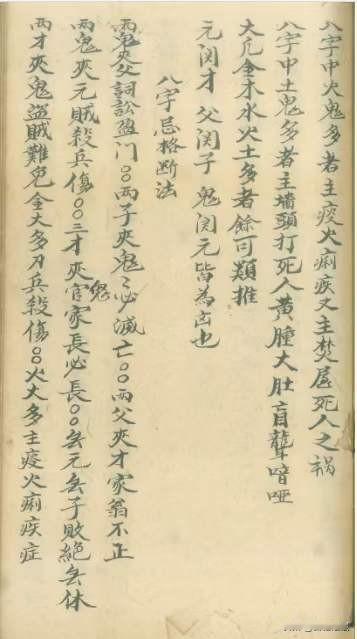 八字中火鬼多者主痰火痢疾又主焚屋死人之禍
八字中土鬼多者主墻頭打死人黃腫大肚盲聾喑啞
大凡金木水火土多者餘可類推
元閃才 父閃子 鬼閃元皆為凶也
八字忌格断法
兩鬼夾父詞訟盈门〇〇兩子夾鬼〻必滅亡〇〇兩父夾才家翁不正
兩鬼夾元賊殺兵傷〇〇三才夾官鬼家長必長〇〇旡元旡子敗絕旡休
兩才夾鬼盜賊難免金大多刀兵殺傷〇〇火大多主痰火痢疾症